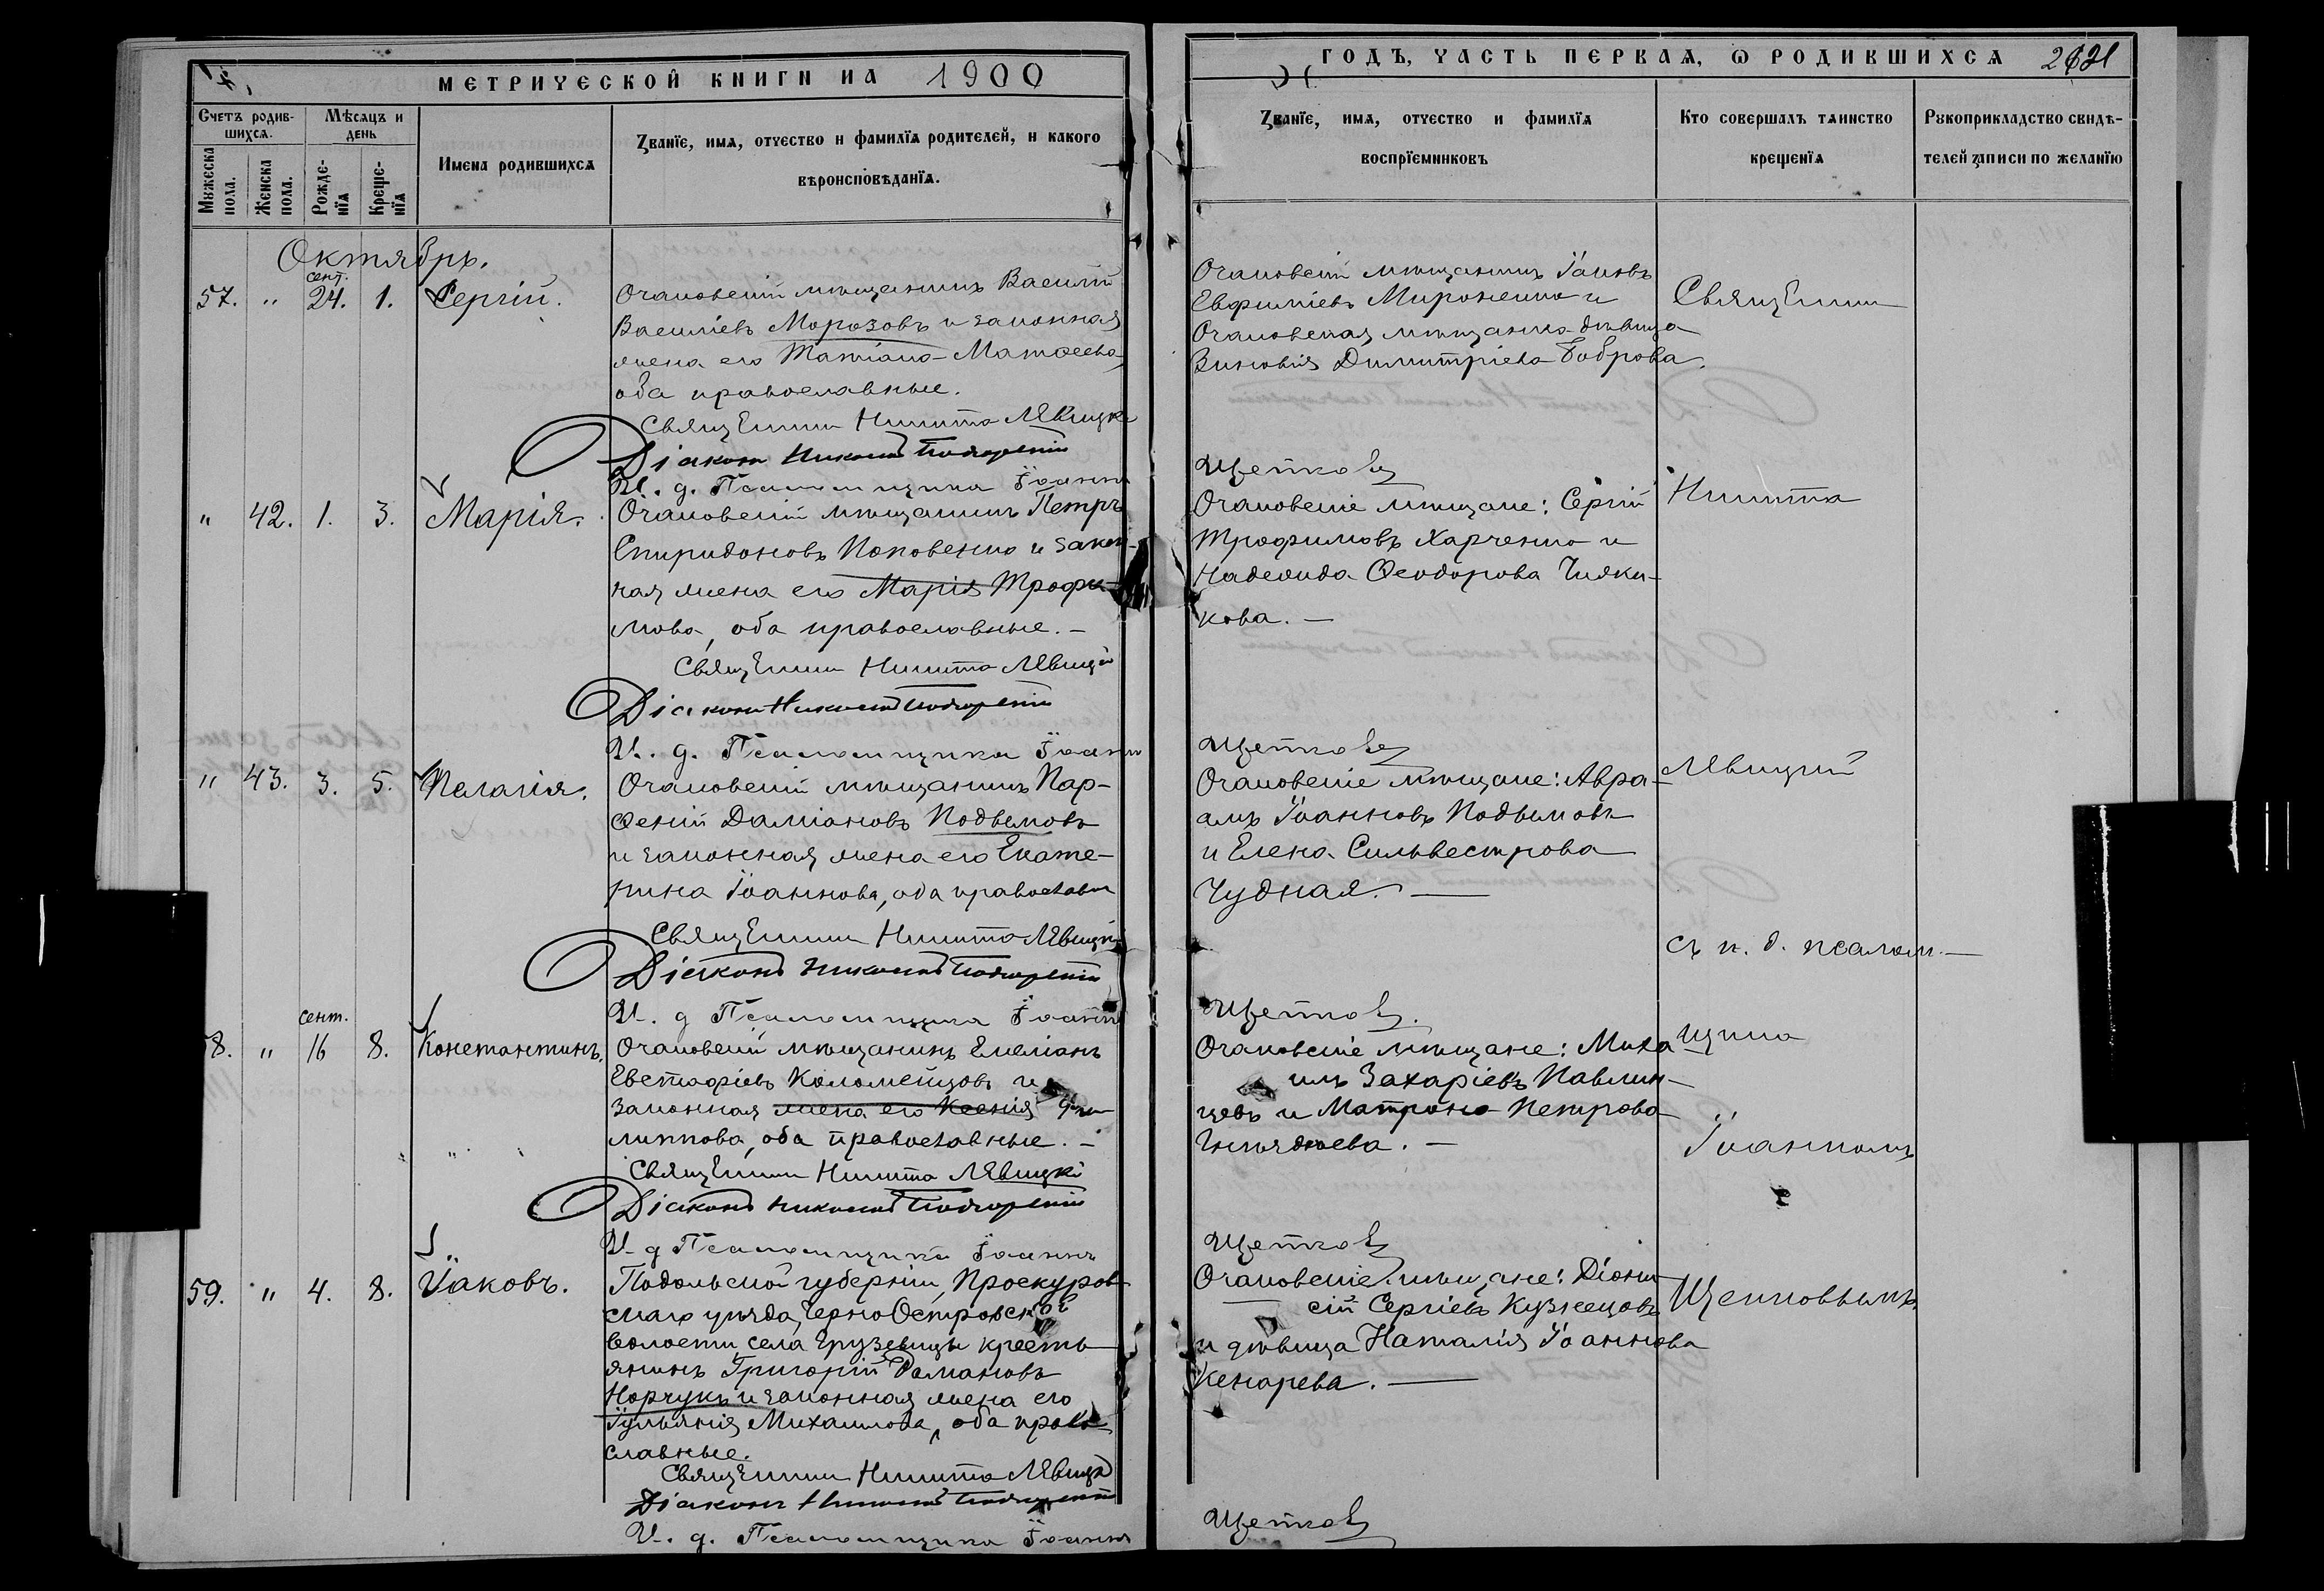 МЕТРИЧЕСКОЙ КНИГИ НА 1900
Счетъ родив-
шихся.
Мѣсяцъ и
день
Мужеска
пола.
Женска
пола.
Рожде-
нїя
Креще-
нїя
Имена родившихся
Званїе, имя, отчество и фамилїя родителей, и какого
вѣроисповѣданїя.
Октябрь.
сент.
57. " 24. 1. Сергій.
Очаковскій мѣщанинъ Василій
Василіевъ Морозовъ и законная
жена его Татіана Матѳеева,
оба православные.
Священник Никита Лѣвицкі
Діаконъ Николай
И. д. Псаломщика Іоаннъ
" 42. 1. 3. Марія.
Очаковскій мѣщанинъ Петръ
Спиридоновъ Поповенко и закон-
ная жена его Марія Трофи-
мова, оба православные. —
Священник Никита Лѣвицкі
Діаконъ Николай
И. д. Псаломщика Іоаннъ
" 43. 3. 5. Пелагія.
Очаковскій мѣщанинъ Пар-
ѳеній Даміановъ Подвымовъ
и законная жена его Екате-
рина Іоаннова, оба православн
Священник Никита Лѣвицкі
Діаконъ Николай
И. д Псаломщика Іоаннъ
сент.
58. " 16 8. Константинъ.
Очаковскій мѣщанинъ Емеліанъ
Евстафіевъ Коломейцовъ и
законная жена его Ксенія Фи-
липпова, оба православные. —
Священник Никита Лѣвицкі
Діаконъ Николай
И. д Псаломщика Іоаннъ
59. " 4. 8. Іаковъ.
Подольской губерніи, Проскуров-
скаго уѣзда, Черно Островской
волости села Грузевицы кресть-
янинъ Григорій Романовъ
Норчукъ и законная жена его
Іульянія Михаилова, оба право-
славные.
Священник Никита Лѣвицкі
Діаконъ Николай
И. д. Псаломщика Іоаннъ
ГОДЪ, ЧАСТЬ ПЕРВАЯ, Ѡ РОДИВШИХСЯ
Званїе, имя, отчество и фамилїя
воспрїемниковъ
Кто совершалъ таинство
крещенїя
Рукоприкладство свидѣ-
телей записи по желанїю
Очаковскій мѣщанинъ Іаковъ
Евфиміевъ Мироненко и
Очаковская мѣщанка дѣвица
Зиновія Димитріева Боброва.
Щетковъ
Очаковскіе мѣщане: Сергій
Трофимовъ Харченко и
Надежда Ѳеодорова Чижи-
кова. —
Щетковъ
Очаковскіе мѣщане: Авра-
амъ Іоанновъ Подвымовъ
и Елена Сильвестрова
Чудная. —
Щетковъ.
Очаковскіе мѣщане: Миха
илъ Захаріевъ Павлин-
цевъ и Матрона Петрова
Щетковъ
Очаковскіе мѣщане: Діони-
сій Сергіевъ Кузнецовъ
и дѣвица Наталія Іоаннова
Кенарева. —
Щетковъ
Священник
Никита
Лѣвицкій
съ и. д. псалом-
щика
Іоанномъ
Щетковымъ.